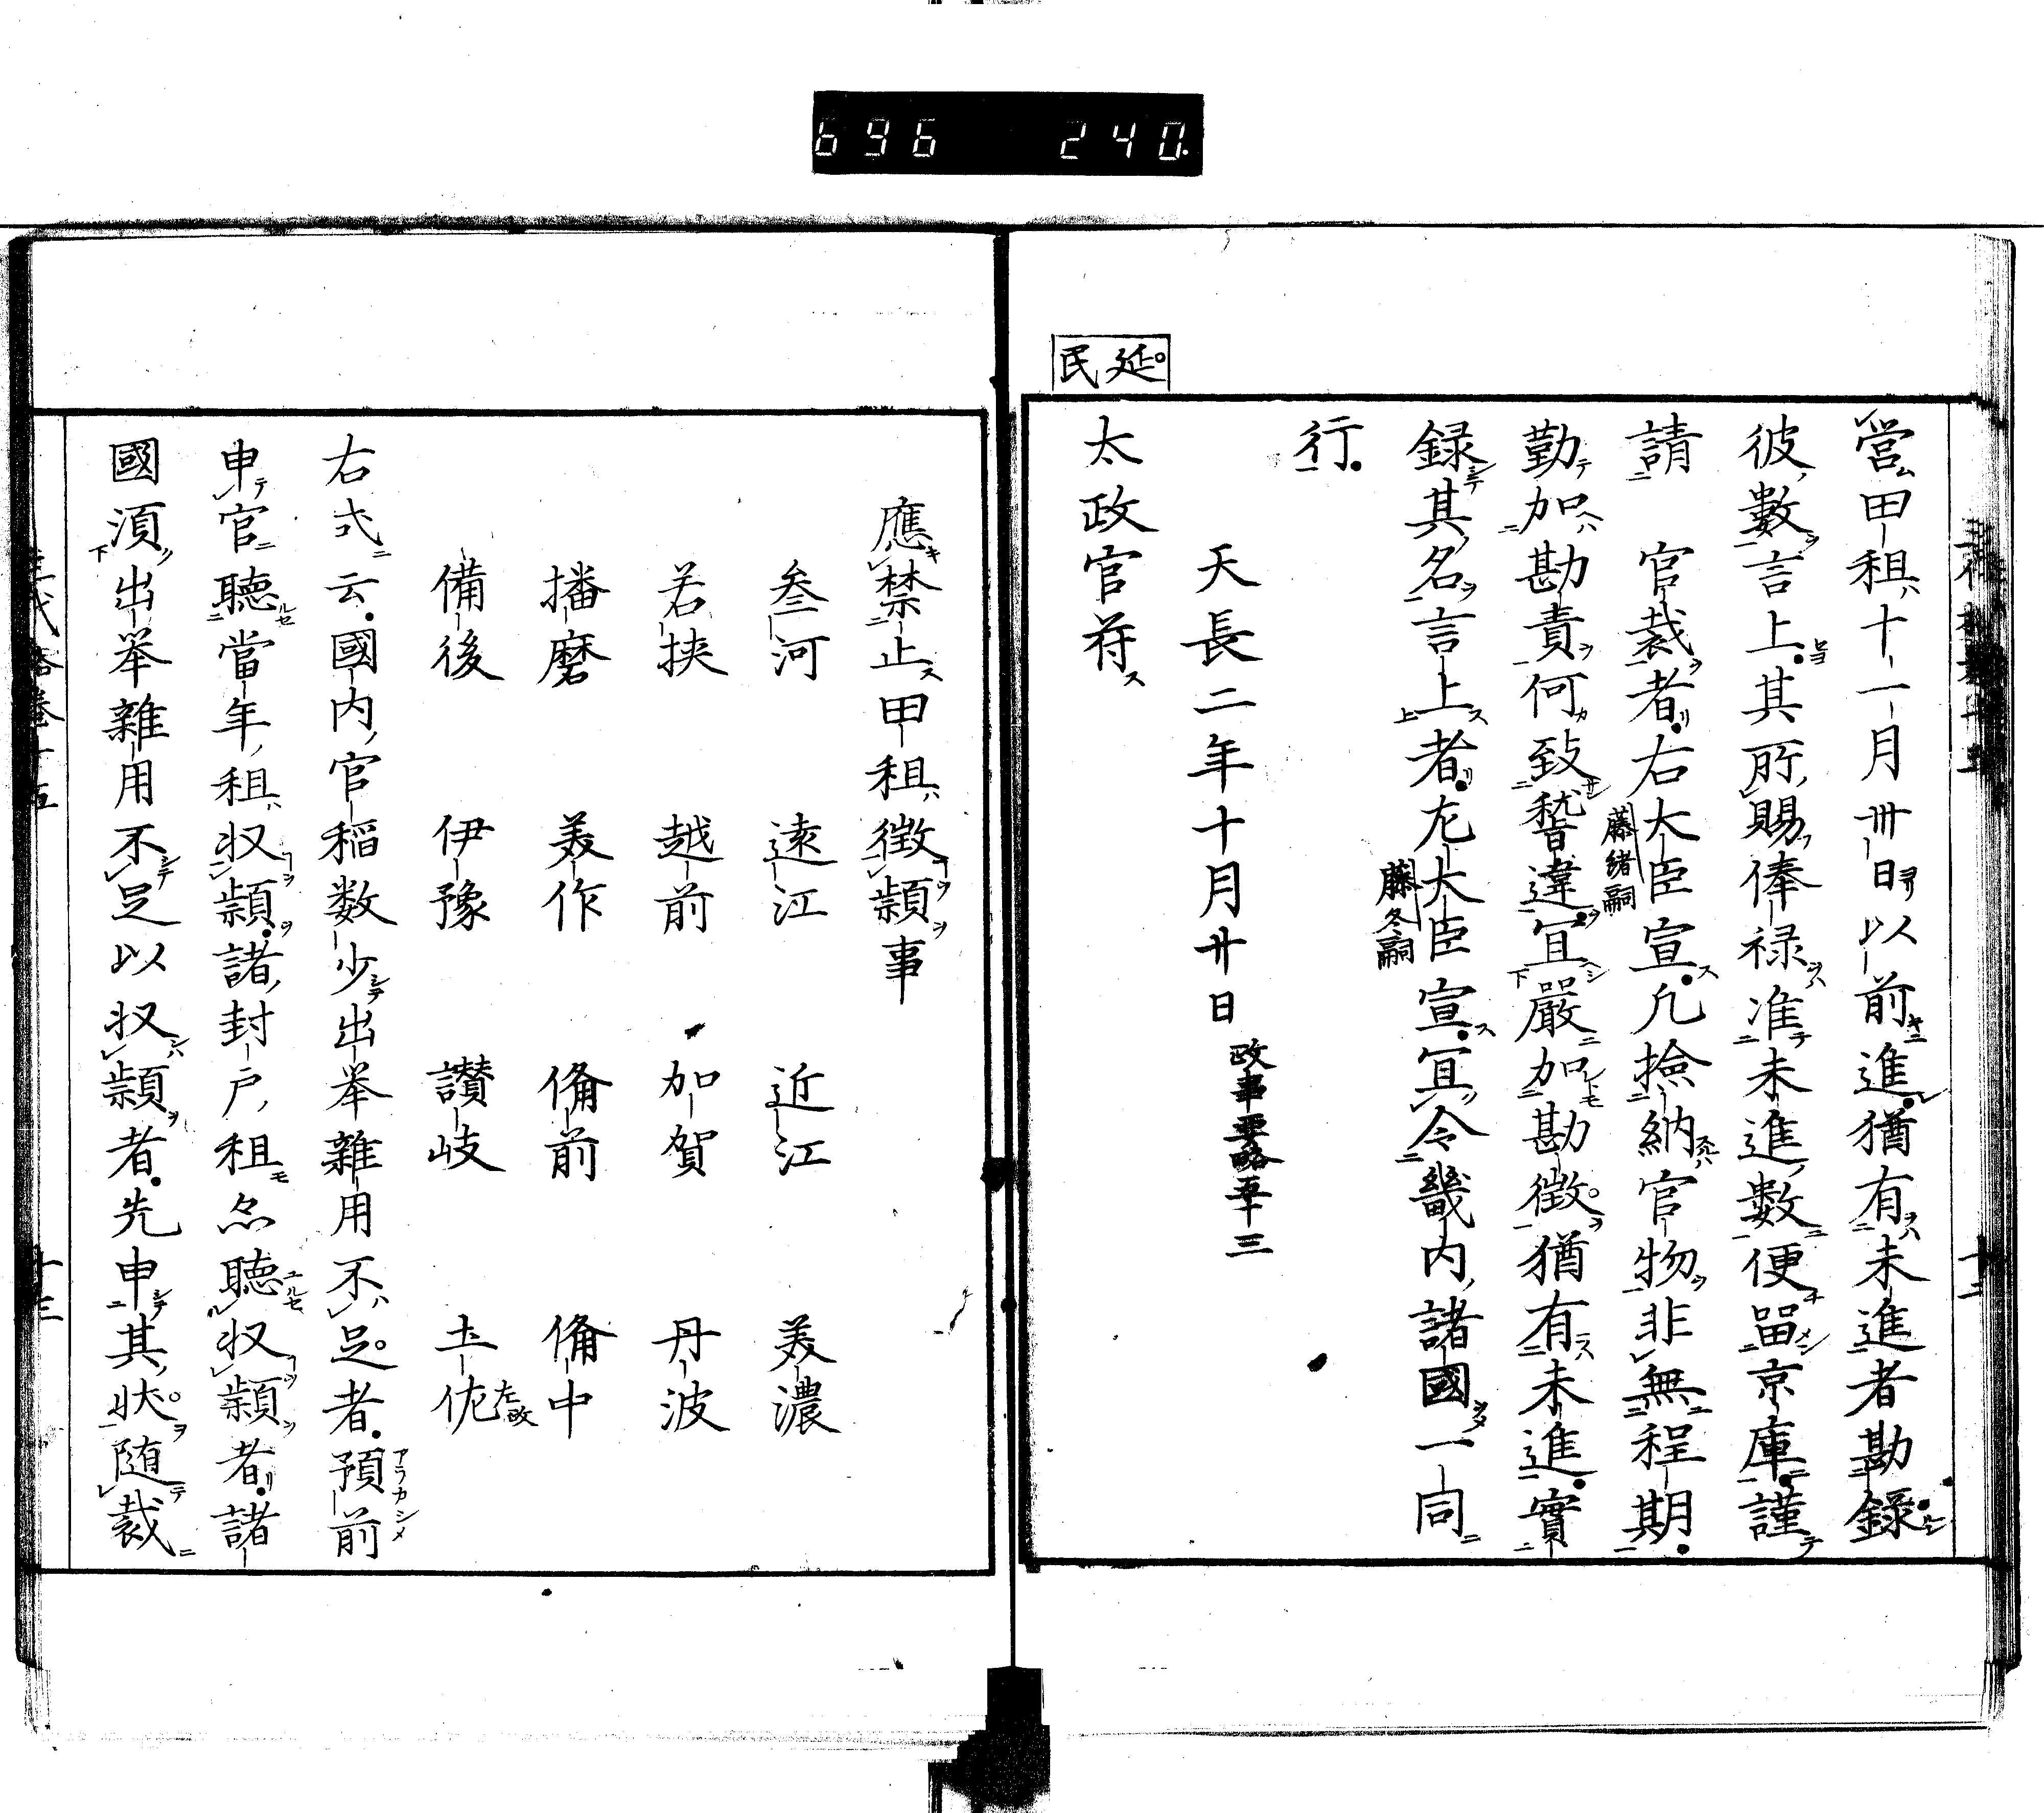 696 240
延民
営田租十一月卅日以前進猶有未進者勘録
彼數言上其所賜俸禄准未進數便留京庫謹
請 官裁者右大臣宣凡撿納官物非無程期
藤緒嗣
勤加勘責何致稽違宜嚴加勘徴猶有未進實
録其名言上者左大臣宣冝令畿内諸國一同
藤冬嗣
行
天長二年十月廿日 政事要略五十三
太政官符
應禁止田租徴穎事
叁河 遠江 近江 美濃
若挟 越前 加賀 丹波
播磨 美作 俻前 俻中
備後 伊豫 讃岐 土佐
右式云國内官稲数少出举雜用不足者預前
申官聴當年租収穎諸封戸租亦聴収穎者諸
國湏出举雜用不足以収穎者先申其状随裁